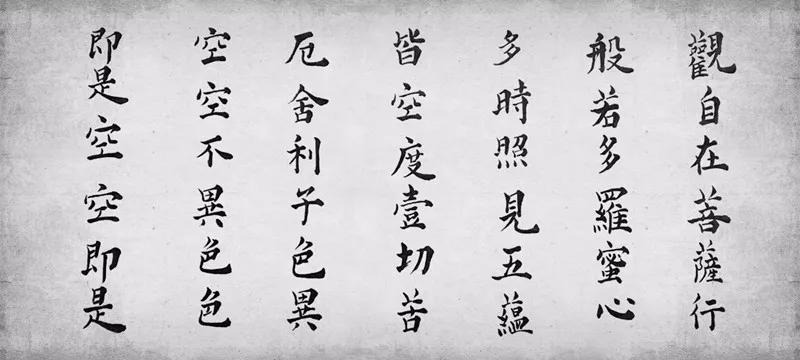 觀自在菩薩行
般若多羅蜜心
多時照見五蘊
皆空度壹切苦
厄舍利子色異
空空不異色色
即是空空即是